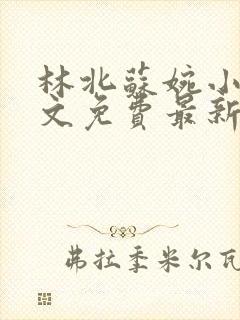 林北蘇婉小
文免費最新
弗拉季米尔瓦